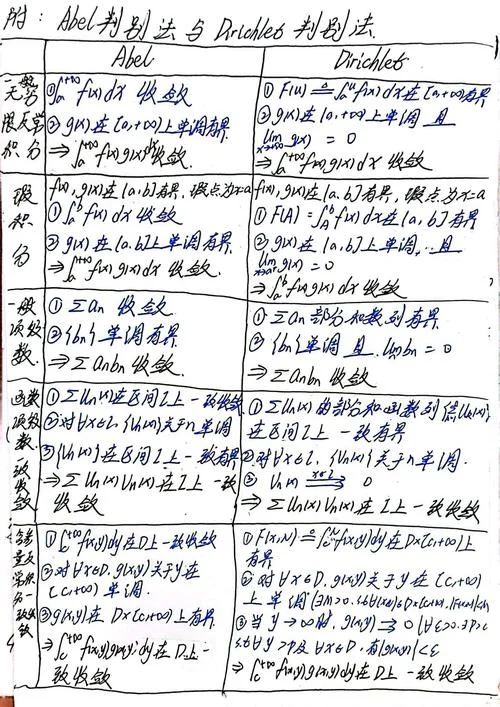 附：Abel判别法与Dirichlet判别法
Abel
Dirichlet
一般
无穷
限反常
积分
①∫ₐ⁺∞ f(x)dx 收敛
②g(x)在[a,+∞)上单调有界
⇒∫ₐ⁺∞ f(x)g(x)dx收敛
①F(u)≜∫ₐᵘ f(x)dx在[a,+∞)有界
②g(x)在[a,+∞)上单调 且
lim x→+∞ g(x) = 0
⇒∫ₐ⁺∞ f(x)g(x)dx 收敛
瑕
积
分
f(x),g(x)在(a,b]有界,瑕点为x=a
①∫ₐᵇ f(x)dx 收敛
②g(x)在(a,b]上单调有界
⇒∫ₐᵇ f(x)g(x)dx 收敛.
f(x),g(x)在(a,b]有界,瑕点为x=a
①F(A)=∫_Aᵇ f(x)dx在(a,b]有界
②g(x)在(a,b]上单调,且
lim x→a⁺ g(x)=0
⇒∫ₐᵇ f(x)g(x)dx 收敛
一般
项级
数.
①Σan 收敛
②{bn}单调有界
⇒Σanbn 收敛.
①Σan 部分和数列有界
②{bn}单调 且 lim bn = 0
⇒Σanbn 收敛
函数
项级
数
一致
收敛
①ΣUn(x)在区间I上一致收敛
②对∀x∈I, {Vn(x)}关于n单调
③{Vn(x)}在区间I上一致有界
⇒ΣUn(x)Vn(x)在I上一致
收敛
①ΣUn(x)的部分和函数列
在区间I上一致有界
②对∀x∈I, {Vn(x)}关于n单调.
③Vn(x) ⇉ 0
⇒ΣUn(x)Vn(x)在I上一致收敛
含参
量反
常积
分一
致收
敛
①∫c⁺∞ f(x,y)dy在D上一致收敛
②对∀x∈D, g(x,y)关于y在
[c,+∞)单调.
③g(x,y)在D×[c,+∞)上有界
⇒∫c⁺∞ f(x,y)g(x,y)dy在D上一
致收敛
①F(x,N)≜∫cᴺ f(x,y)dy在D×[c,+∞)上
有界
②对∀x∈D, g(x,y)关于y在[c,+∞)
上单调
③当y→∞时, g(x,y)⇉0
⇒∫c⁺∞ f(x,y)g(x,y)dy在D上一致收敛